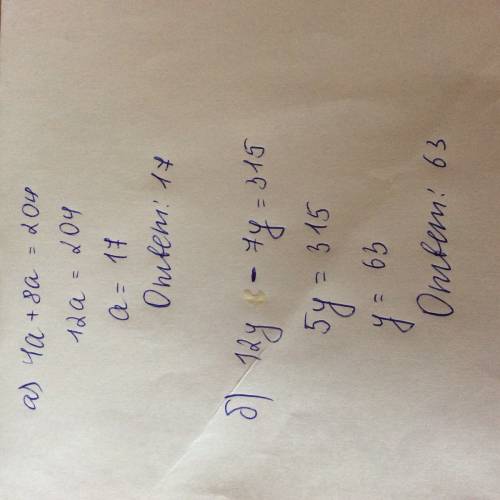 а) 4а + 8а = 204
12а = 204
а = 17
Ответ: 17
б) 12у - 7у = 315
5у = 315
у = 63
Ответ: 63